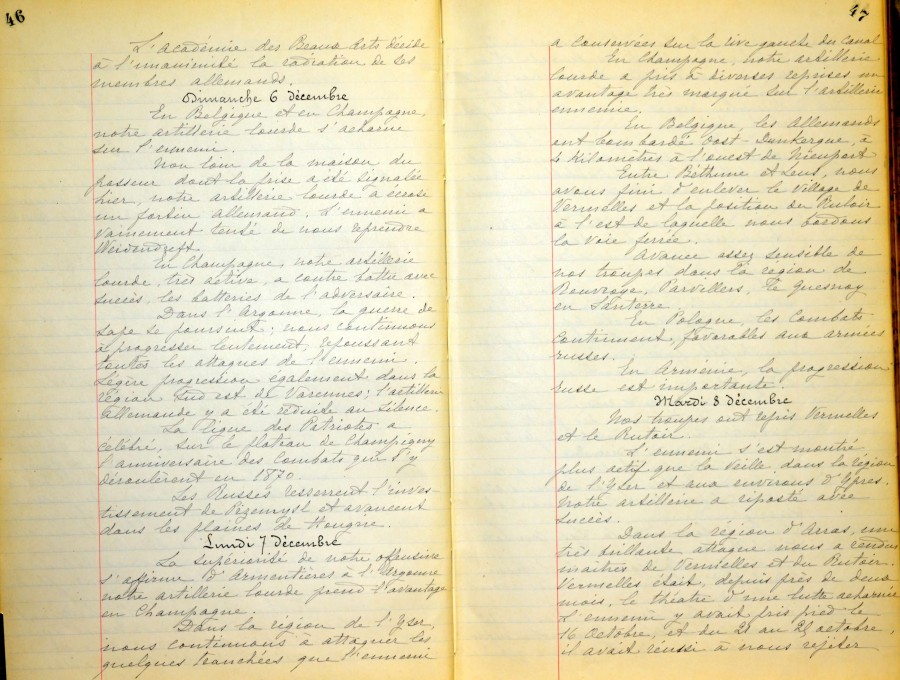 46
L'Académie des Beaux Arts décide
à l'unanimité la radiation de ses
membres allemands.
Dimanche 6 décembre
En Belgique et en Champagne,
notre artillerie lourde s'acharne
sur l'ennemi.
Non loin de la maison du
passeur dont la prise a été signalée
hier, notre artillerie lourde a écrasé
un fortin allemand. L'ennemi a
vainement tenté de nous reprendre
Weidendreft
En Champagne, notre artillerie
lourde, très active, a contre battu avec
succès, les batteries de l'adversaire.
Dans l'Argonne, la guerre de
sape se poursuit; nous continuons
à progresser lentement, repoussant
toutes les attaques de l'ennemi.
Légère progression également dans la
région Sud est de Varennes; l'artillerie
allemande y a été réduite au silence.
La Ligue des Patriotes a
célébré, sur le plateau de Champigny
l'anniversaire des combats qui s'y
déroulèrent en 1870.
Les Russes resserrent l'inves-
tissement de Przemysl et avancent
dans les plaines de Hongrie.
Lundi 7 décembre
La supériorité de notre offensive
s'affirme d'Armentières à l'Argonne
notre artillerie lourde prend l'avantage
en Champagne.
Dans la région de l'Yser,
nous continuons à attaquer les
quelques tranchées que l'ennemi
47
a conservées sur la rive gauche du Canal
En Champagne, notre artillerie
lourde a pris à diverses reprises un
avantage très marqué sur l'artillerie
ennemie.
En Belgique, les Allemands
ont bombardé Oost-Dunkerque, à
4 kilomètres à l'ouest de Nieuport
Entre Béthune et Lens, nous
avons fini d'enlever le village de
Vermelles et la position du Rutoir
à l'est de laquelle nous bordons
la voie ferrée.
Avance assez sensible de
nos troupes dans la région de
Rouvroye, Parvillers, Le Quesnoy
en Santerre
En Pologne, les combats
continuent, favorables aux armées
russes.
En Arménie, la progression
russe est importante.
Mardi 8 décembre
Nos troupes ont repris Vermelles
et le Rutoir.
L'ennemi s'est montré
plus actif que la veille, dans la région
de l'Yser et aux environs d'Ypres.
Notre artillerie a riposté avec
succès.
Dans la région d'Arras, une
très brillante attaque nous a rendus
maîtres de Vermelles et du Rutoir.
Vermelles était, depuis près de deux
mois, le théâtre d'une lutte acharnée
L'ennemi y avait pris pied le
16 octobre, et du 21 au 25 octobre,
il avait réussi à nous rejeter